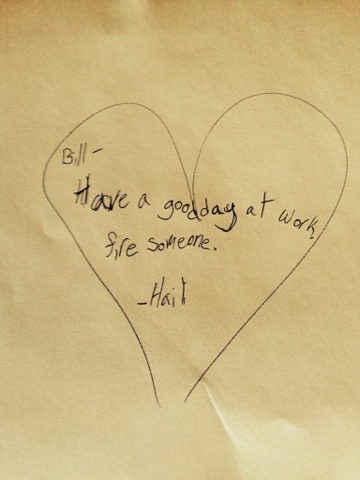 Bill-
Have a good day at work.
fire someone.